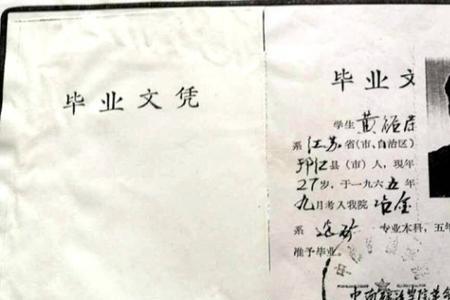 毕业文凭
毕业文
学生 黄
系 江苏 省(市、自治区)
邗江 县(市)人，现年
27岁，于一九六五年
九月考入我院 冶金
系 选矿 专业本科，五年
准予毕业。
中南矿冶学院革